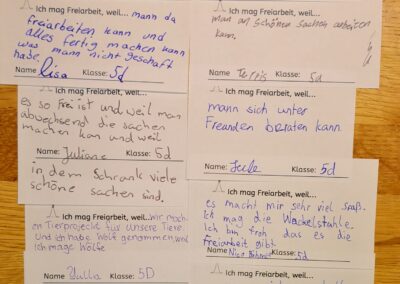 Ich mag Freiarbeit, weil... mann da
freiarbeiten kann und
alles fertig machen kann
was mann nicht geschaft
habe.
Name: Lisa Klasse: 5d
es so frei ist und weil man
abwechsend die sachen
machen kan und weil
Name: Juliane Klasse: 5d
in dem Schrank viele
schöne sachen sind.
Ich mag Freiarbeit, weil... wir mach-
en Tierprojekte für unsere Tiere
und ich habe Wolf genommen, weil
ich mage Wölfe
Name: Yullia Klasse: 5D
Ich mag Freiarbeit, weil...
man an schönen sachen arbeiten
kann.
Name: Klasse: 5d
Ich mag Freiarbeit, weil...
mann sich unter
Freunden beraten kann.
Name: Klasse: 5d
Ich mag Freiarbeit, weil...
es macht mir sehr viel Spaß.
Ich mag die Wackelstühle.
Ich bin froh das es die
Freiarbeit gibt.
Klasse: 5d
Ich mag Freiarbeit, weil...